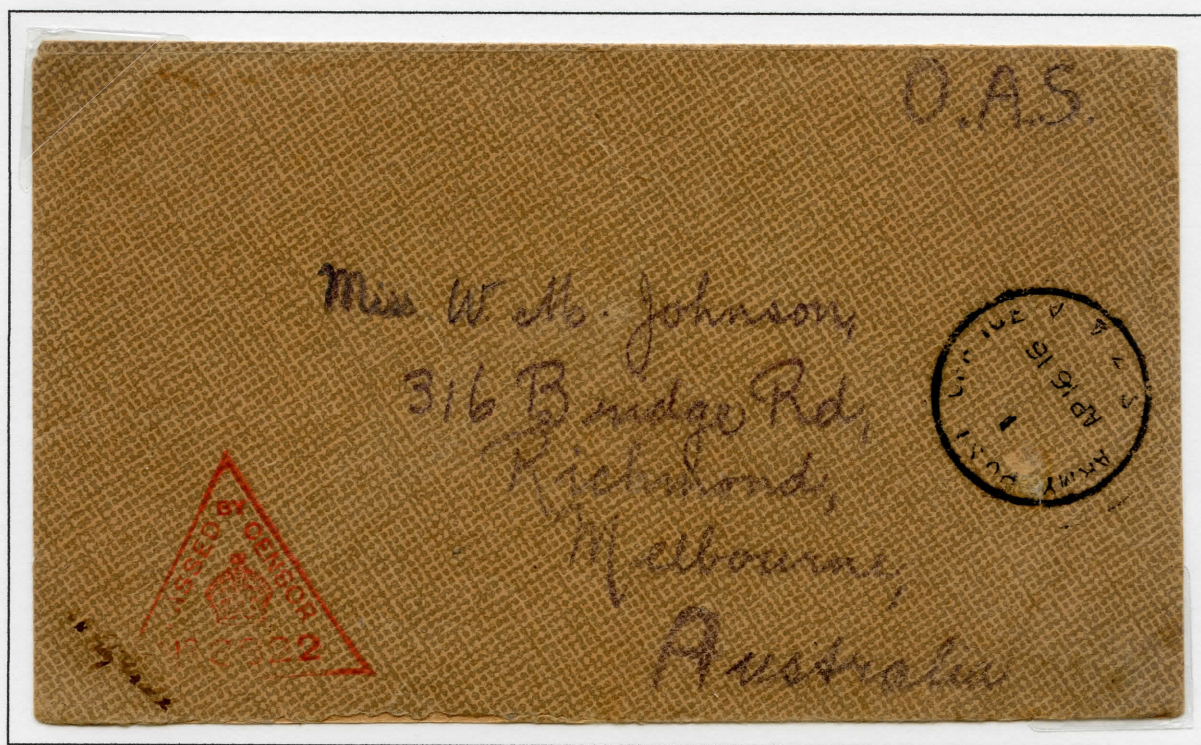 O.A.S.
Miss. W. M. Johnson,
316 Bridge Rd,
Richmond,
Melbourne,
Australia
ARMY POST OFFICE
AP 16 16
PASSED BY CENSOR